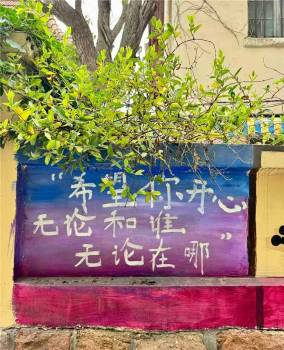 “希望你开心
无论和谁
无论在哪”